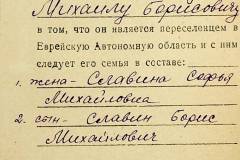 Михаилу Борисовичу
в том, что он является переселенцем в
Еврейскую Автономную область и с ним
следует его семья в составе:
1. жена - Славина Софья
Михайловна
2. сын - Славин Борис
Михайлович